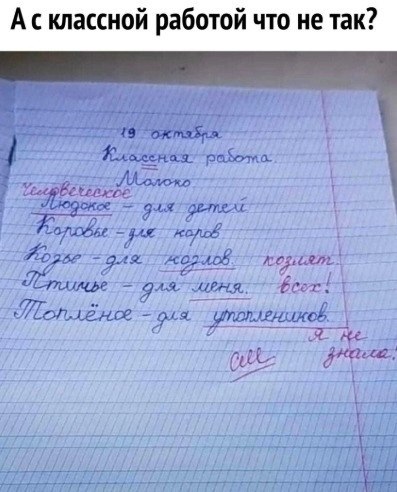 А с классной работой что не так?
19 октября
Классная работа
Молоко
Человеческое
Людское – для детей
Коровье – для коров
Козье – для козлов. козлят
Птичье – для меня. всех!
Топлёное – для утопленников.
я не
знала!
См